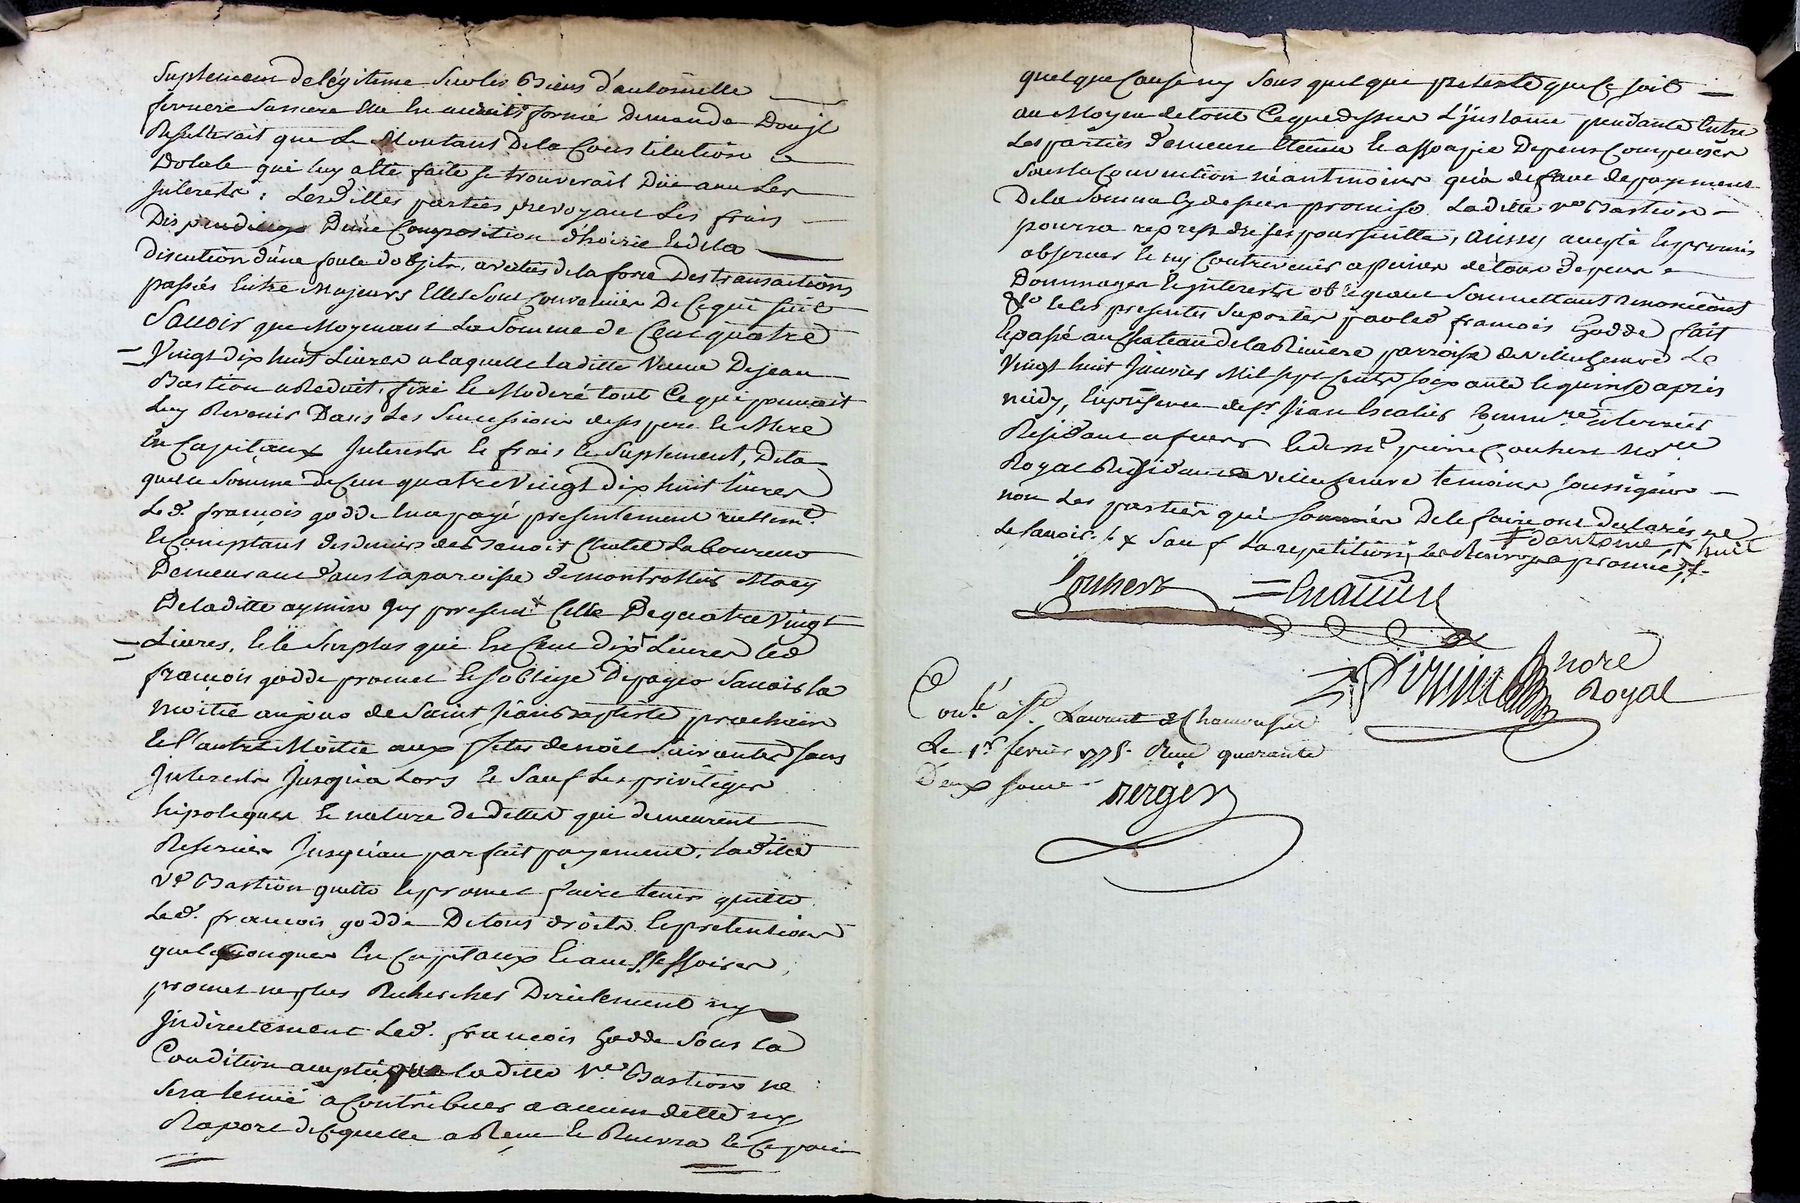 Suplement de légitime Surles Biens d'antoinette
ferriere sa mere
formé demande Doujl
Resulterait que Le Montant De la Constitution
Dotale qui luy a été faite se trouverait Düe avec Les
Jnterests; Lesdittes parties prevoyant Les frais
D'une Composition d'hoirie et de la
discution d'une foule d'objets, de la force Des transactions
passées Entre Majeurs Elles Sont Convenües De Ce qui Suit
Sauoir que Moyenant La Somme de Cent quatre
Vingt dix huit Livres a laquelle laditte Veuve De jean
Bastion a Reduit, fixé Et Moderé tout Ce qui pouvait
Luy Revenir Dans Les Successions de ses pere Et Mere
En Capitaux Jnterests Et frais Et Suplement, De la
quelle Somme de Cent quatre Vingt Dix huit livres
Led. françois godde En a payé presentement
Et Comptant des deniers de Benoit Chatel Laboureur
Demeurant dans la paroisse de montrottier Mary
De laditte aymin jcy present Celle De quatre Vingt
Livres, Et le Surplus qui Est Cent Dix Livres led
françois godde promet Et s'oblige De payer Sauoir la
moitié au jour de Saint Jean Baptiste prochain
Et l'autre Moitié aux fêtes de noël Suivantes sans
Jnterests Jusqu'a Lors Et Sauf Les privileges
hipoteques Et nature de dettes qui demeurent
Reservées Jusqu'au parfait payement, laditte
Ve Bastion quitte Et promet faire tenir quitte
Led. françois godde De tous droits Et pretentions
quelconques En Capitaux Et accessoires,
promet ne plus Rechercher Directement ny
Jndirectement Led. françois Godde Sous la
Condition que laditte Ve Bastion ne
sera tenüe a Contribuer a aucune dette ny
Raport de Ce quelle a Reçu Et Recevra Et Ce pour
quelque Cause ny Sous quelque pretexte que Ce soit
au Moyen de tout Ce que dessus L'jnstance pendante Entre
Les parties demeure Eteinte Et assoupie Depens Compensés
Sous la Convention néantmoins qu'a defaut de payement
De la Somme Cy dessus promise Laditte ve Bastion
pourra reprendre ses poursuitte, aussy Et promis
observer Et ny Contrevenir a peine de tous Depens
Dommages Et jnterests obligeant Soumettant Renonceant
Et les presentes Suportées par led françois Godde fait
Et passé au Chateau de la Riviere parroisse de villechenève Le
Vingt huit Janvier Mil Sept Cents soixante Et quinze après
midy, En présence de sr Jean
Residant a feurs Et de me pierre Jouhert nore
Royal Residant a villechenève temoins Soussignés
non Les parties qui Sommées De le faire ont declarés ne
le savoir, Sauf La repetition,
+ d'antoine + huit
Jouhert
nore
Royal
Conlé a Ste Laurent de Chamousset
Le 1er fevrier 1775. Reçu quarante
Deux sous
Berger